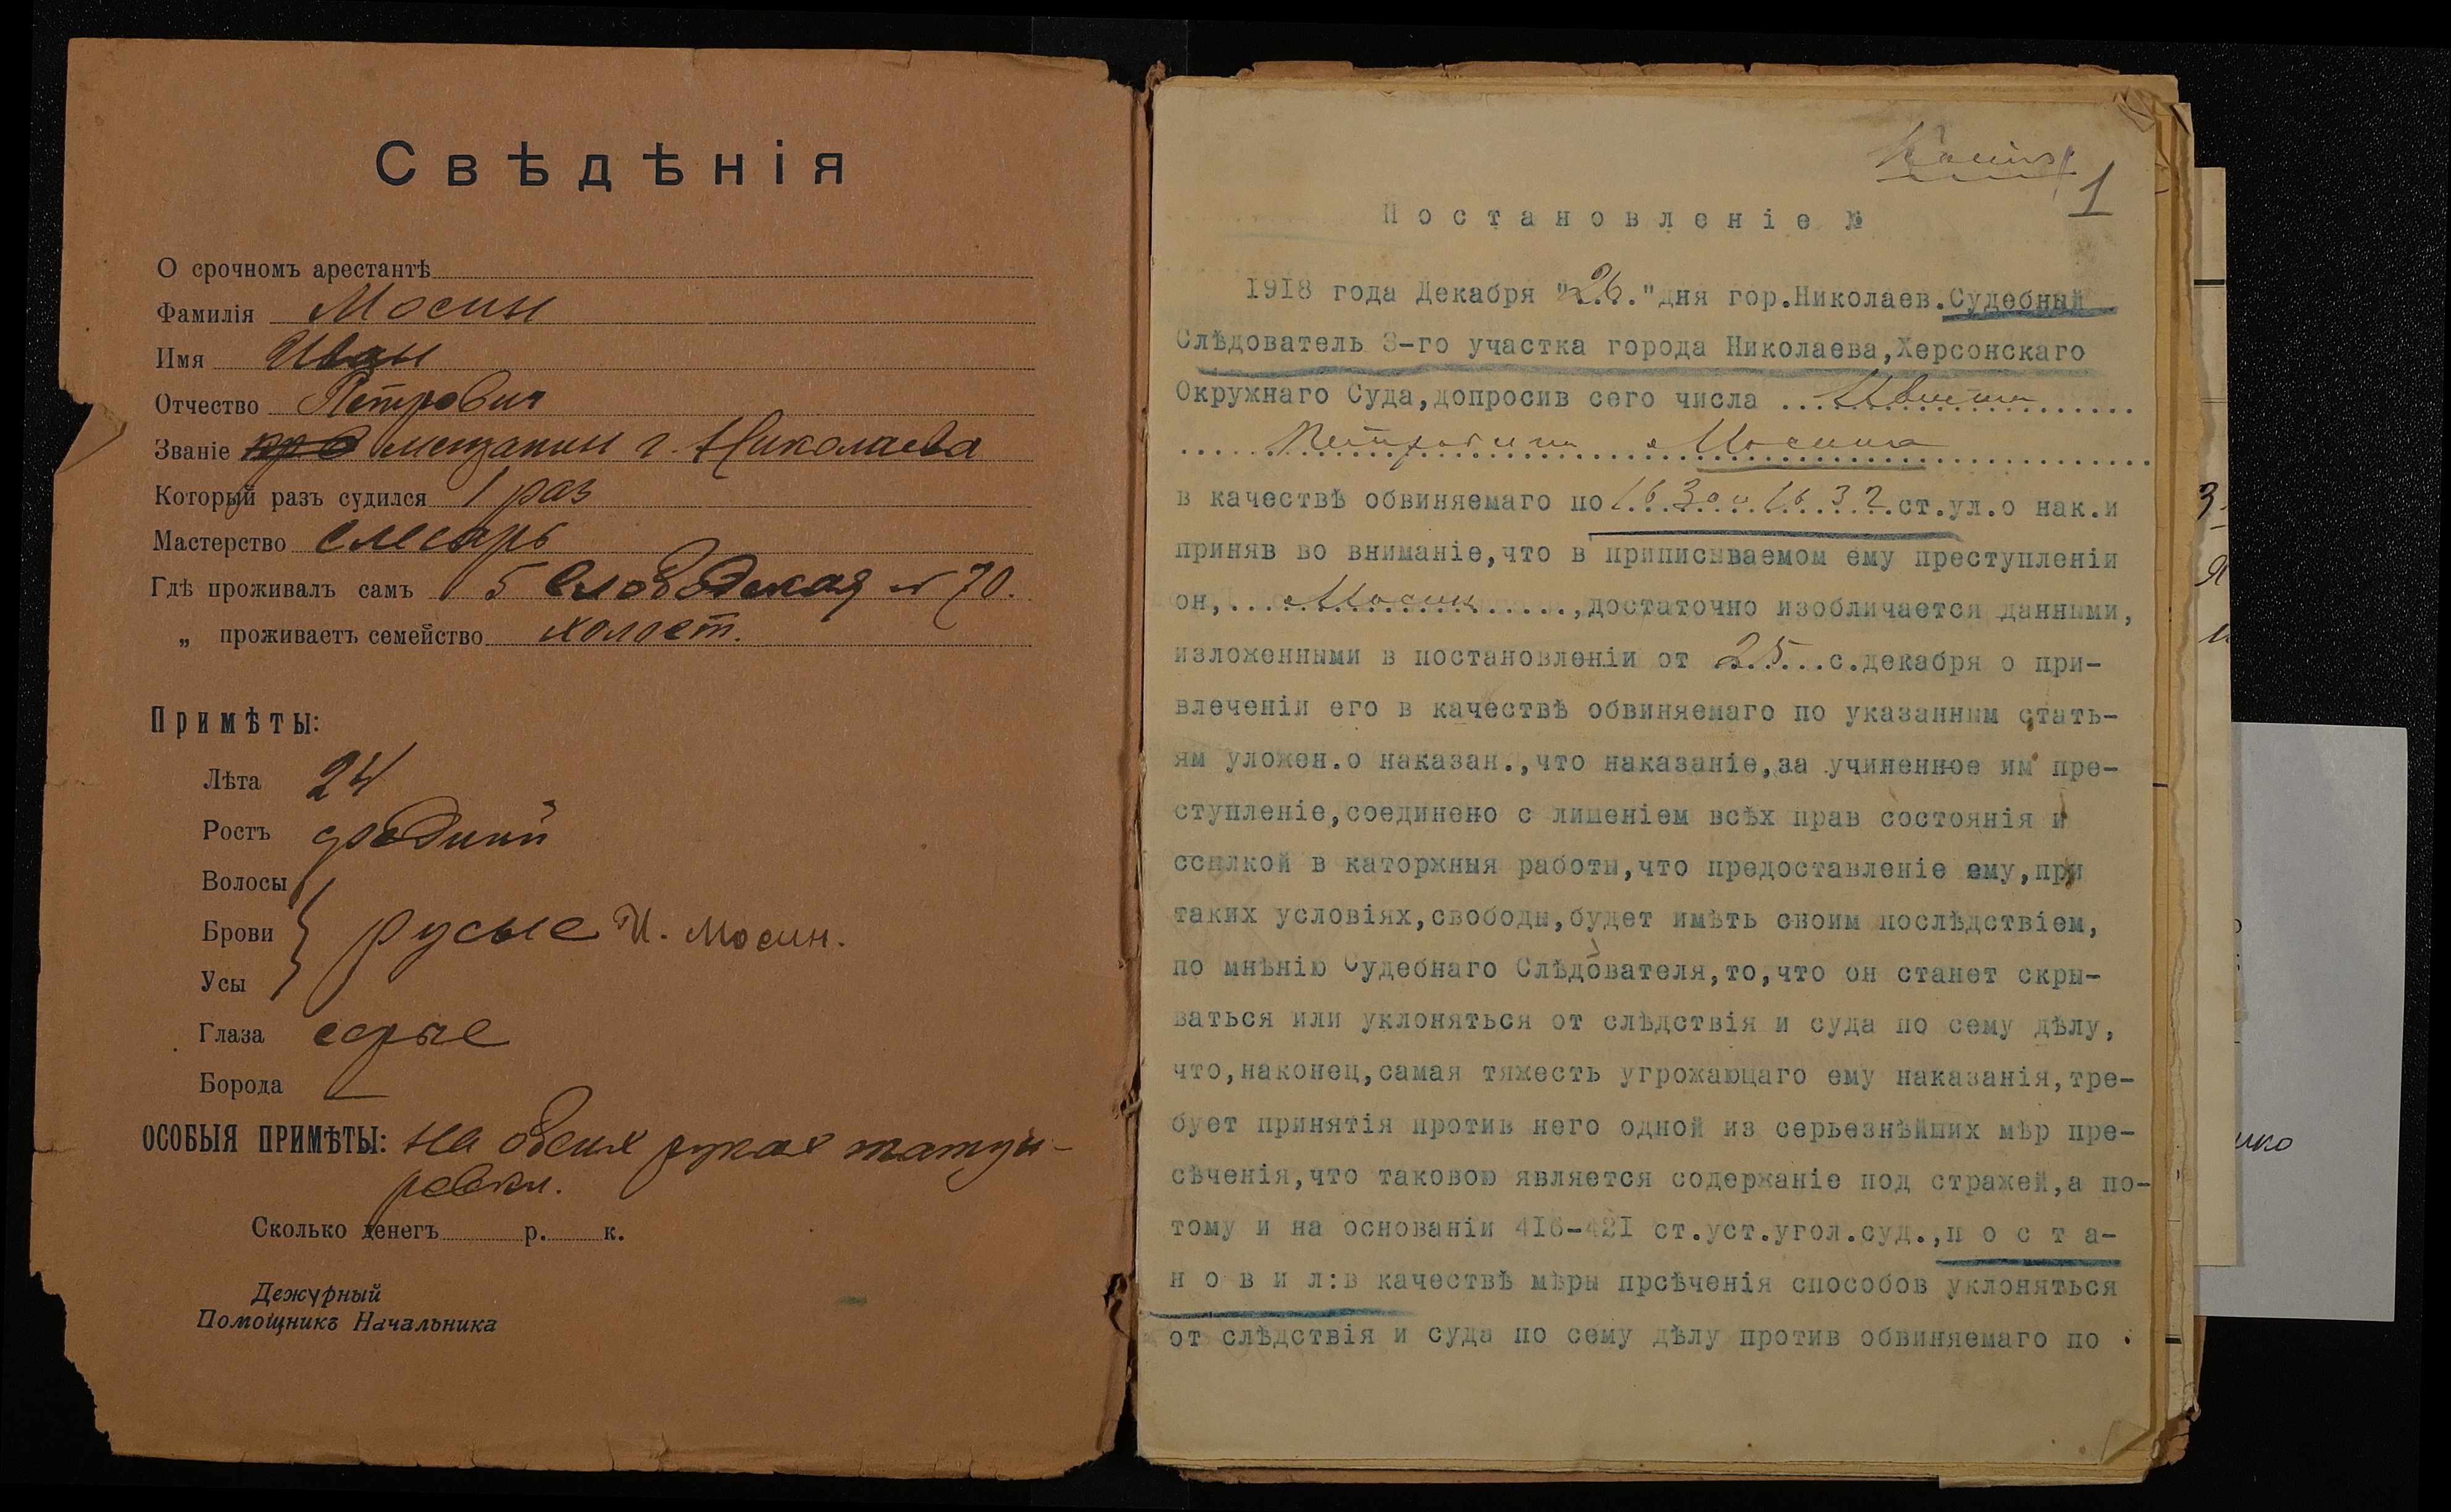 Свѣдѣнія
О срочномъ арестантѣ
Фамилія Мосин
Имя Иван
Отчество Петрович
Званіе мещанин г. Николаева
Который разъ судился 1 раз
Мастерство слесарь
Гдѣ проживалъ самъ 5 Слободская № 70.
„ проживаетъ семейство холост.
Примѣты:
Лѣта 24
Ростъ средний
Волосы
Брови русые И. Мосин.
Усы
Глаза серые
Борода —
ОСОБЫЯ ПРИМѢТЫ: на обеих руках татуи-
ровки.
Сколько денегъ р. к.
Дежурный
Помощникъ Начальника
Копия
1
Постановленіе №
1918 года Декабря "26."дня гор.Николаев.Судебный
Слѣдователь 3-го участка города Николаева,Херсонскаго
Окружнаго Суда,допросив сего числа Ивана
Петровича Мосина
в качествѣ обвиняемаго по 1630 и 1632 ст.ул.о нак.и
приняв во вниманіе,что в приписываемом ему преступленіи
он, Мосин ,достаточно изобличается данными,
изложенными в постановленіи от 25 с.декабря о при-
влеченіи его в качествѣ обвиняемаго по указанным стать-
ям уложен.о наказан.,что наказаніе,за учиненное им пре-
ступленіе,соединено с лишеніем всѣх прав состоянія и
ссылкой в каторжныя работы,что предоставленіе ему,при
таких условіях,свободы,будет имѣть своим послѣдствіем,
по мнѣнію Судебнаго Слѣдователя,то,что он станет скры-
ваться или уклоняться от слѣдствія и суда по сему дѣлу,
что,наконец,самая тяжесть угрожающаго ему наказанія,тре-
бует принятія против него одной из серьезнѣйших мѣр пре-
сѣченія,что таковою является содержаніе под стражей,а по-
тому и на основаніи 416-421 ст.уст.угол.суд.,п о с т а-
н о в и л:в качествѣ мѣры прсѣченія способов уклоняться
от слѣдствія и суда по сему дѣлу против обвиняемаго по